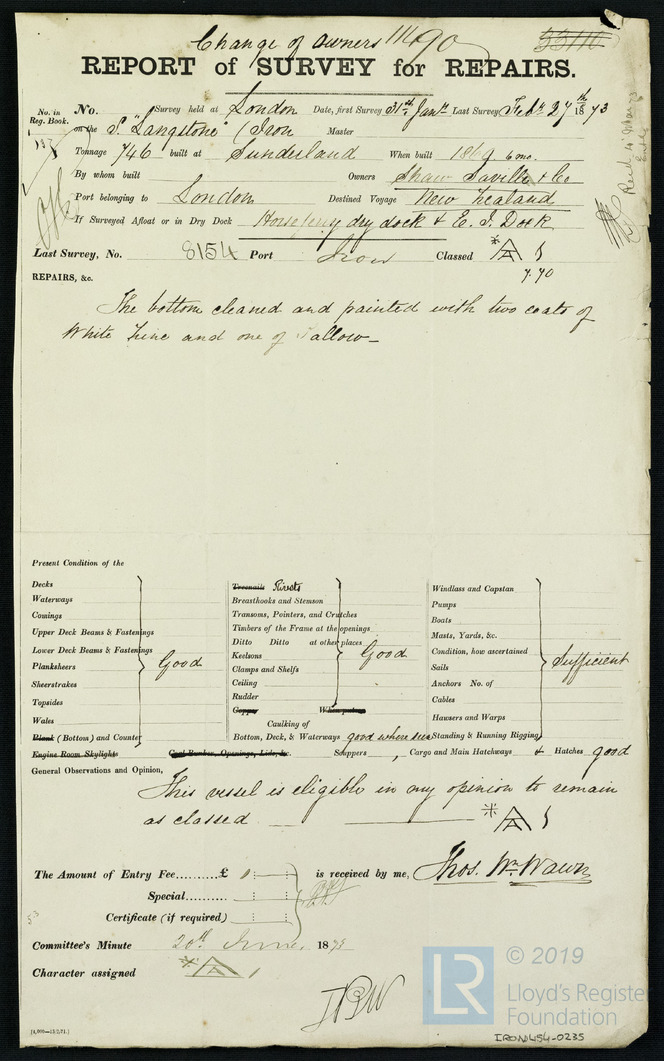 Change of Owners
REPORT of SURVEY for REPAIRS.
No. in Reg. Book.
No. Survey held at London Date, first Survey 31st Jany Last Survey Feby 27th 1873
on the S. "Langstone" (Iron Master
Tonnage 746 built at Sunderland When built 1869. 6 mo.
By whom built Owners Shaw Savill & Co
Port belonging to London Destined Voyage New Zealand
If Surveyed Afloat or in Dry Dock Horseferry dry dock & E. I. Dock
Last Survey, No. 8154 Port Iron Classed A 1
7.70
REPAIRS, &c.
The bottom cleaned and painted with two coats of
White Zinc and one of Tallow—
Present Condition of the
Decks
Waterways
Comings
Upper Deck Beams & Fastenings
Lower Deck Beams & Fastenings
Planksheers
Sheerstrakes
Topsides
Wales
Plank (Bottom) and Counter
Good
Treenails Rivets
Breasthooks and Stemson
Transoms, Pointers, and Crutches
Timbers of the Frame at the openings
Ditto Ditto at other places
Keelsons
Clamps and Shelfs
Ceiling
Rudder
Copper
Good
Caulking of
Bottom, Deck, & Waterways good where seen
Windlass and Capstan
Pumps
Boats
Masts, Yards, &c.
Condition, how ascertained
Sails
Anchors No. of
Cables
Hawsers and Warps
Standing & Running Rigging
Sufficient
Engine Room Skylights Coal Bunker, Openings, Lids, &c. Scuppers , Cargo and Main Hatchways & Hatches good
General Observations and Opinion,
This vessel is eligible in my opinion to remain
as classed A 1
The Amount of Entry Fee.........£ is received by me, Thos. Wm. Wawn
Special............
Certificate (if required)
Committee's Minute 20th June, 1873
Character assigned A 1
© 2019
LR
Lloyd's Register
Foundation
IRON454-0235